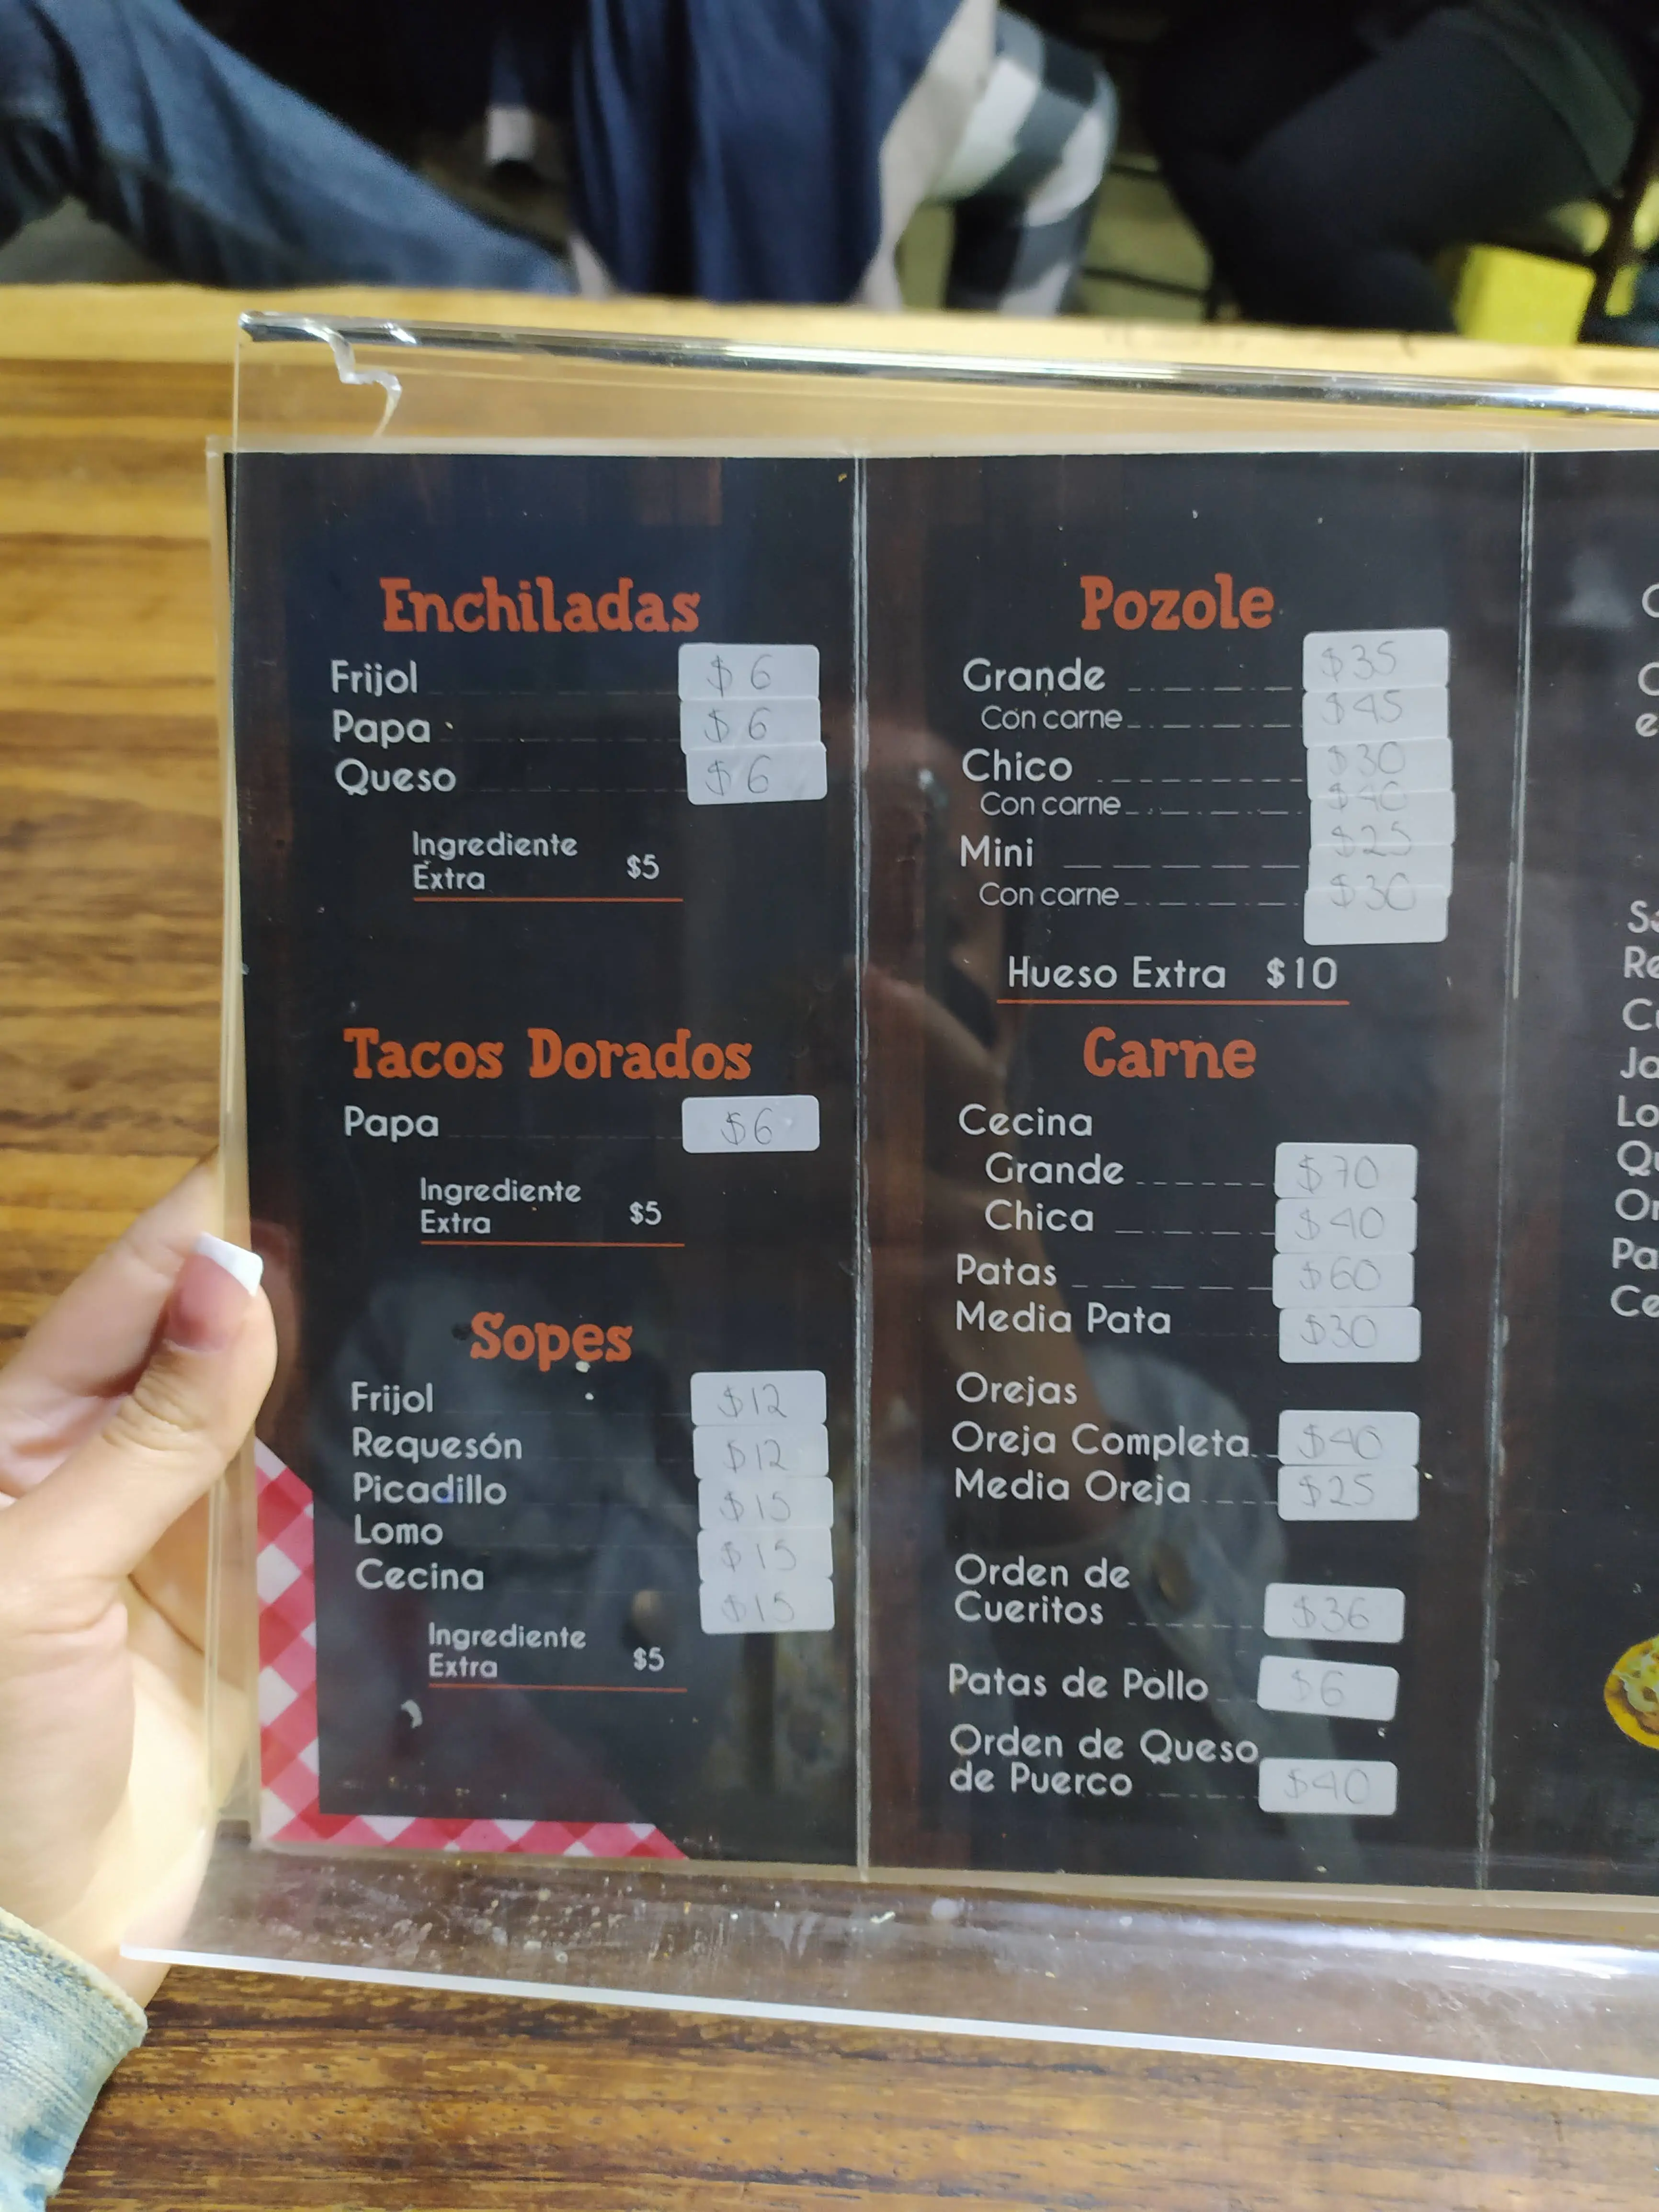 Enchiladas
Frijol $6
Papa $6
Queso $6
Ingrediente
Extra $5
Tacos Dorados
Papa $6
Ingrediente
Extra $5
Sopes
Frijol $12
Requesón $12
Picadillo $15
Lomo $15
Cecina $15
Ingrediente
Extra $5
Pozole
Grande $35
Con carne $45
Chico $30
Con carne $40
Mini $25
Con carne $30
Hueso Extra $10
Carne
Cecina
Grande $70
Chica $40
Patas $60
Media Pata $30
Orejas
Oreja Completa $40
Media Oreja $25
Orden de
Cueritos $36
Patas de Pollo $6
Orden de Queso
de Puerco $40